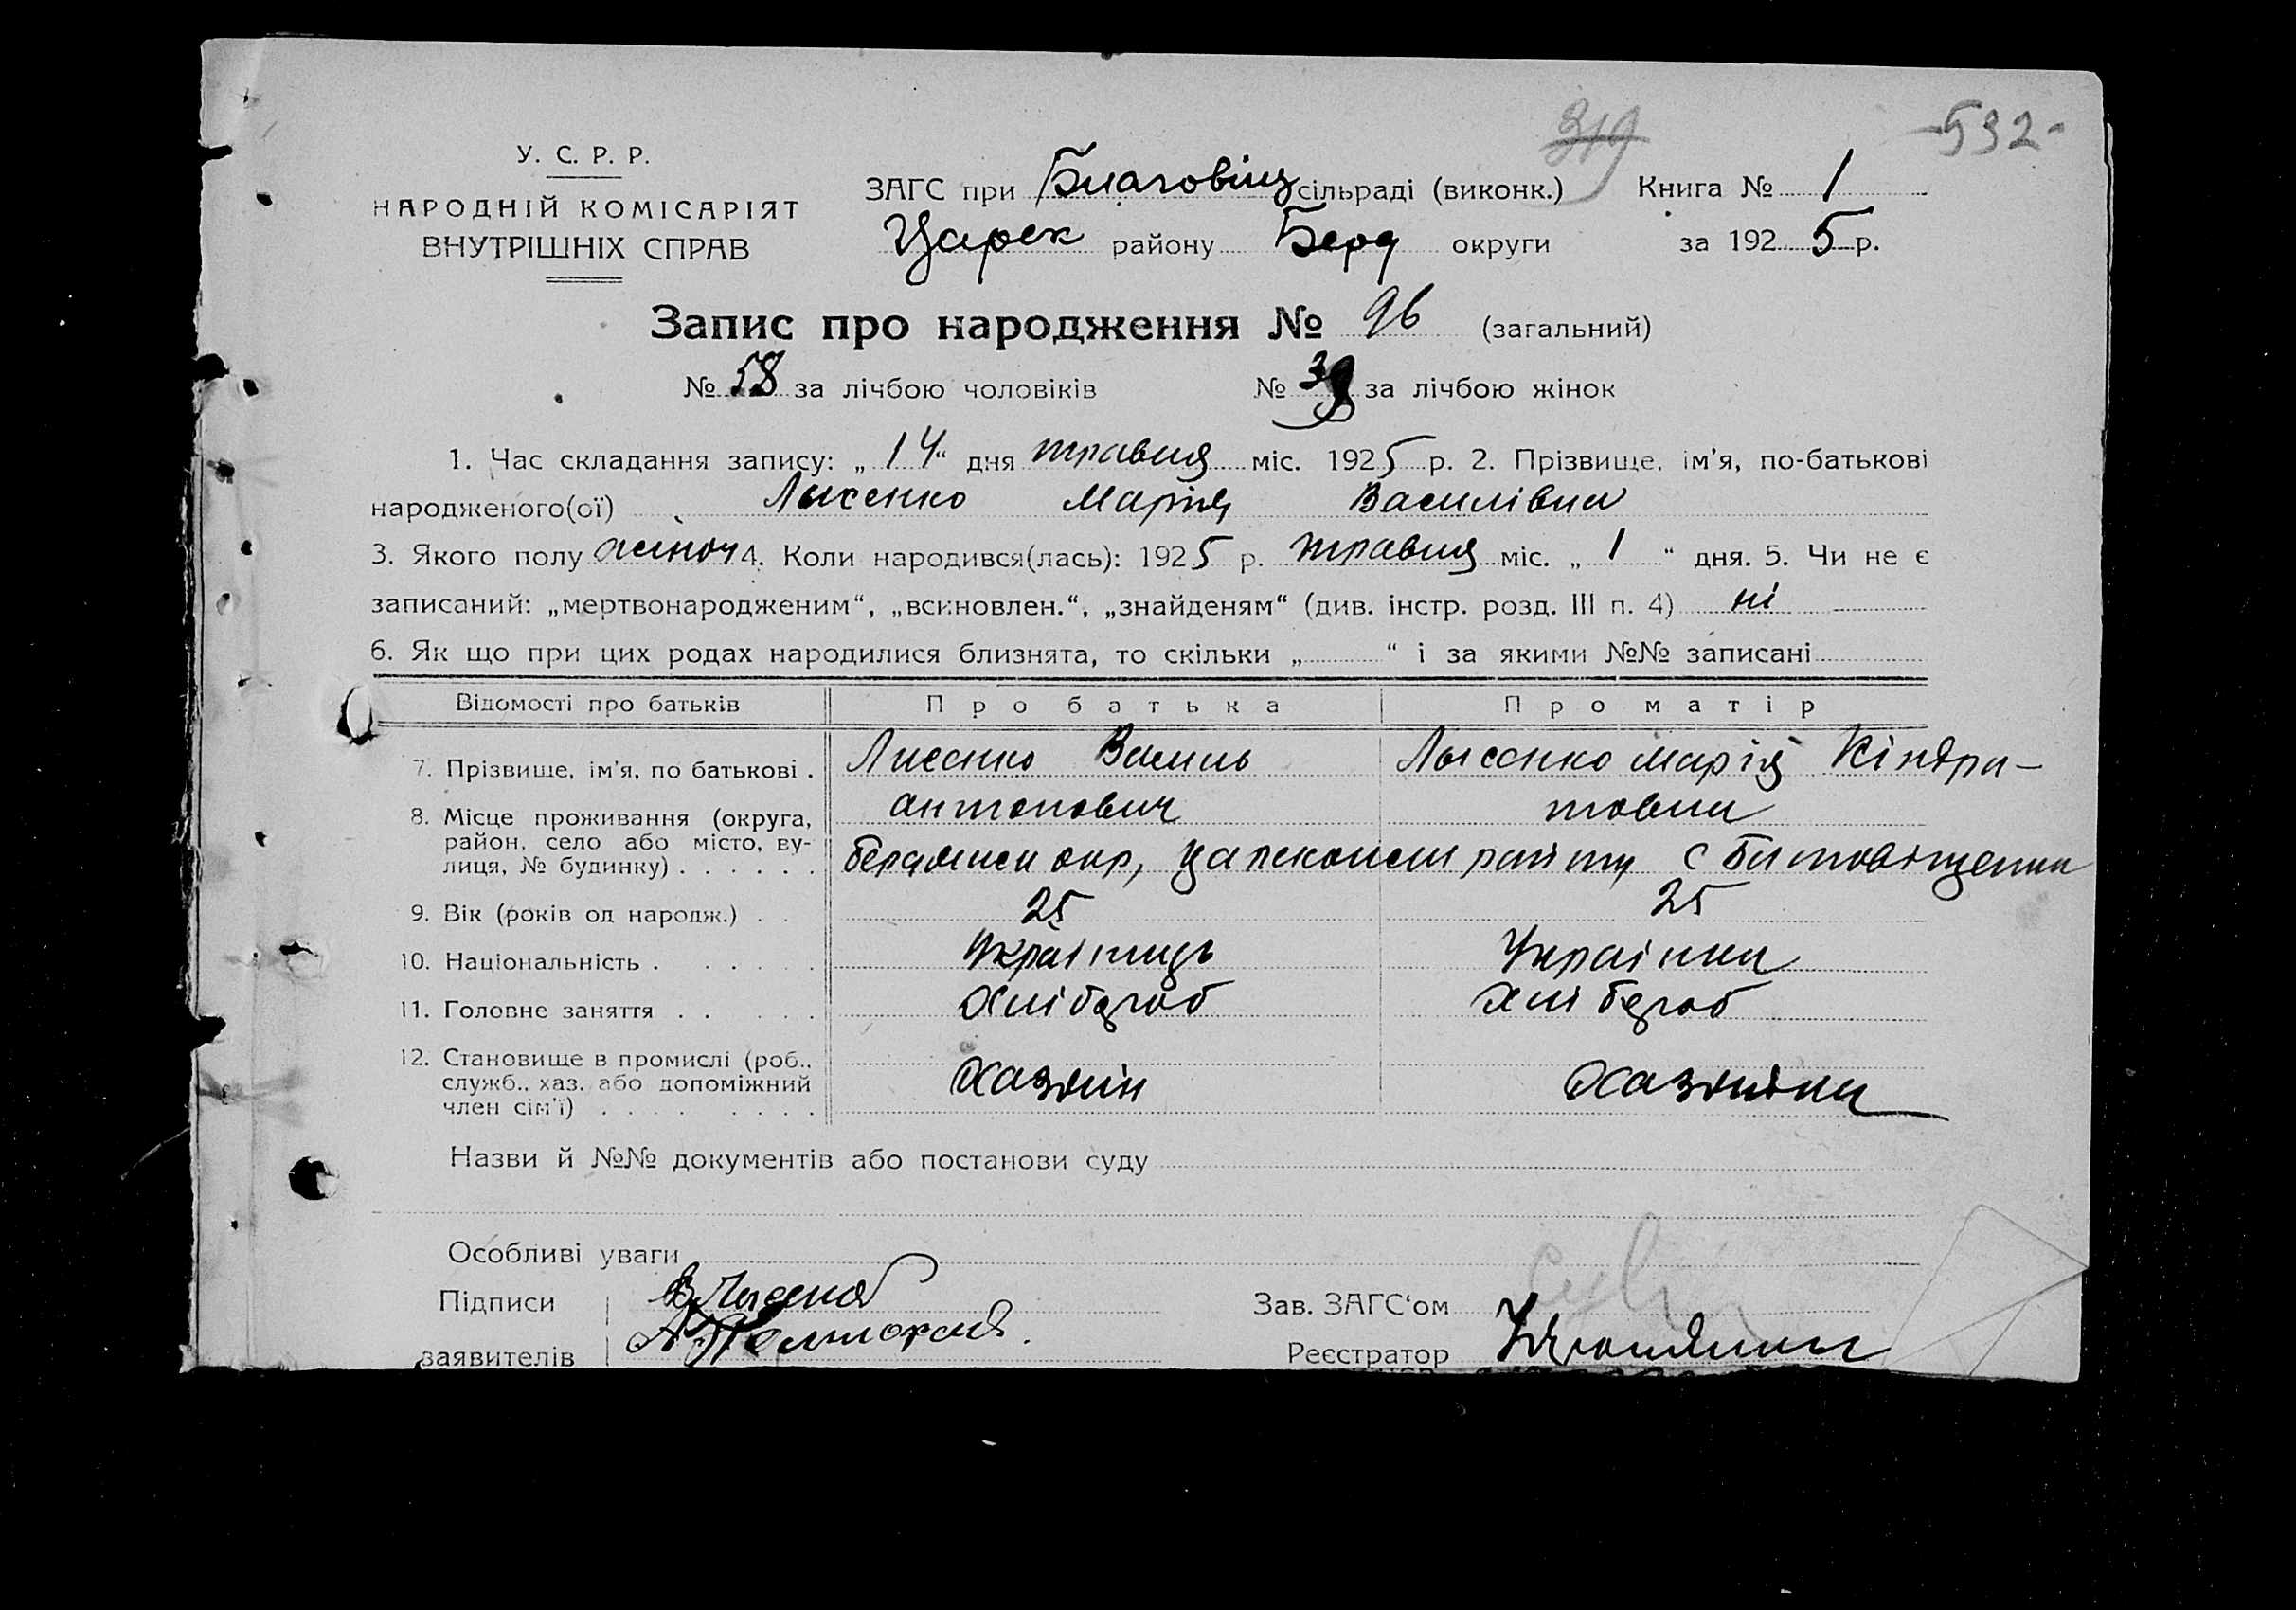 319 -532-
У. С. Р. Р.
НАРОДНІЙ КОМІСАРІЯТ
ВНУТРІШНІХ СПРАВ
ЗАГС при Благовіщ сільраді (виконк.) Книга № 1
Царек району Берд округи за 1925 р.
Запис про народження № 96 (загальний)
№ 58 за лічбою чоловіків № за лічбою жінок
1. Час складання запису: „14“ дня травня міс. 1925 р. 2. Прізвище, ім'я, по-батькові
народженого(ої) Лысенко Марія Василівна
3. Якого полу жіноч 4. Коли народився(лась): 1925 р. травня міс. „1“ дня. 5. Чи не є
записаний: „мертвонародженим“, „всиновлен.“, „знайденям“ (див. інстр. розд. III п. 4) ні
6. Як що при цих родах народилися близнята, то скільки „ “ і за якими №№ записані
Відомості про батьків Про батька Про матір
7. Прізвище, ім'я, по батькові . Лисенко Василь Лысенко Марія Кіндра-
антонович товна
8. Місце проживання (округа,
район, село або місто, ву-
лиця, № будинку) . . . . . . окр, с
9. Вік (років од народж.) . . 25 25
10. Національність . . . . . Українець Українка
11. Головне заняття . . . . . Хлібороб Хлібороб
12. Становище в промислі (роб.,
служб., хаз. або допоміжний
член сім'ї) . . . . . . . . Хазяїн Хазяйка
Назви й №№ документів або постанови суду
Особливі уваги
Підписи В Лысенко Зав. ЗАГС'ом
заявителів Реєстратор